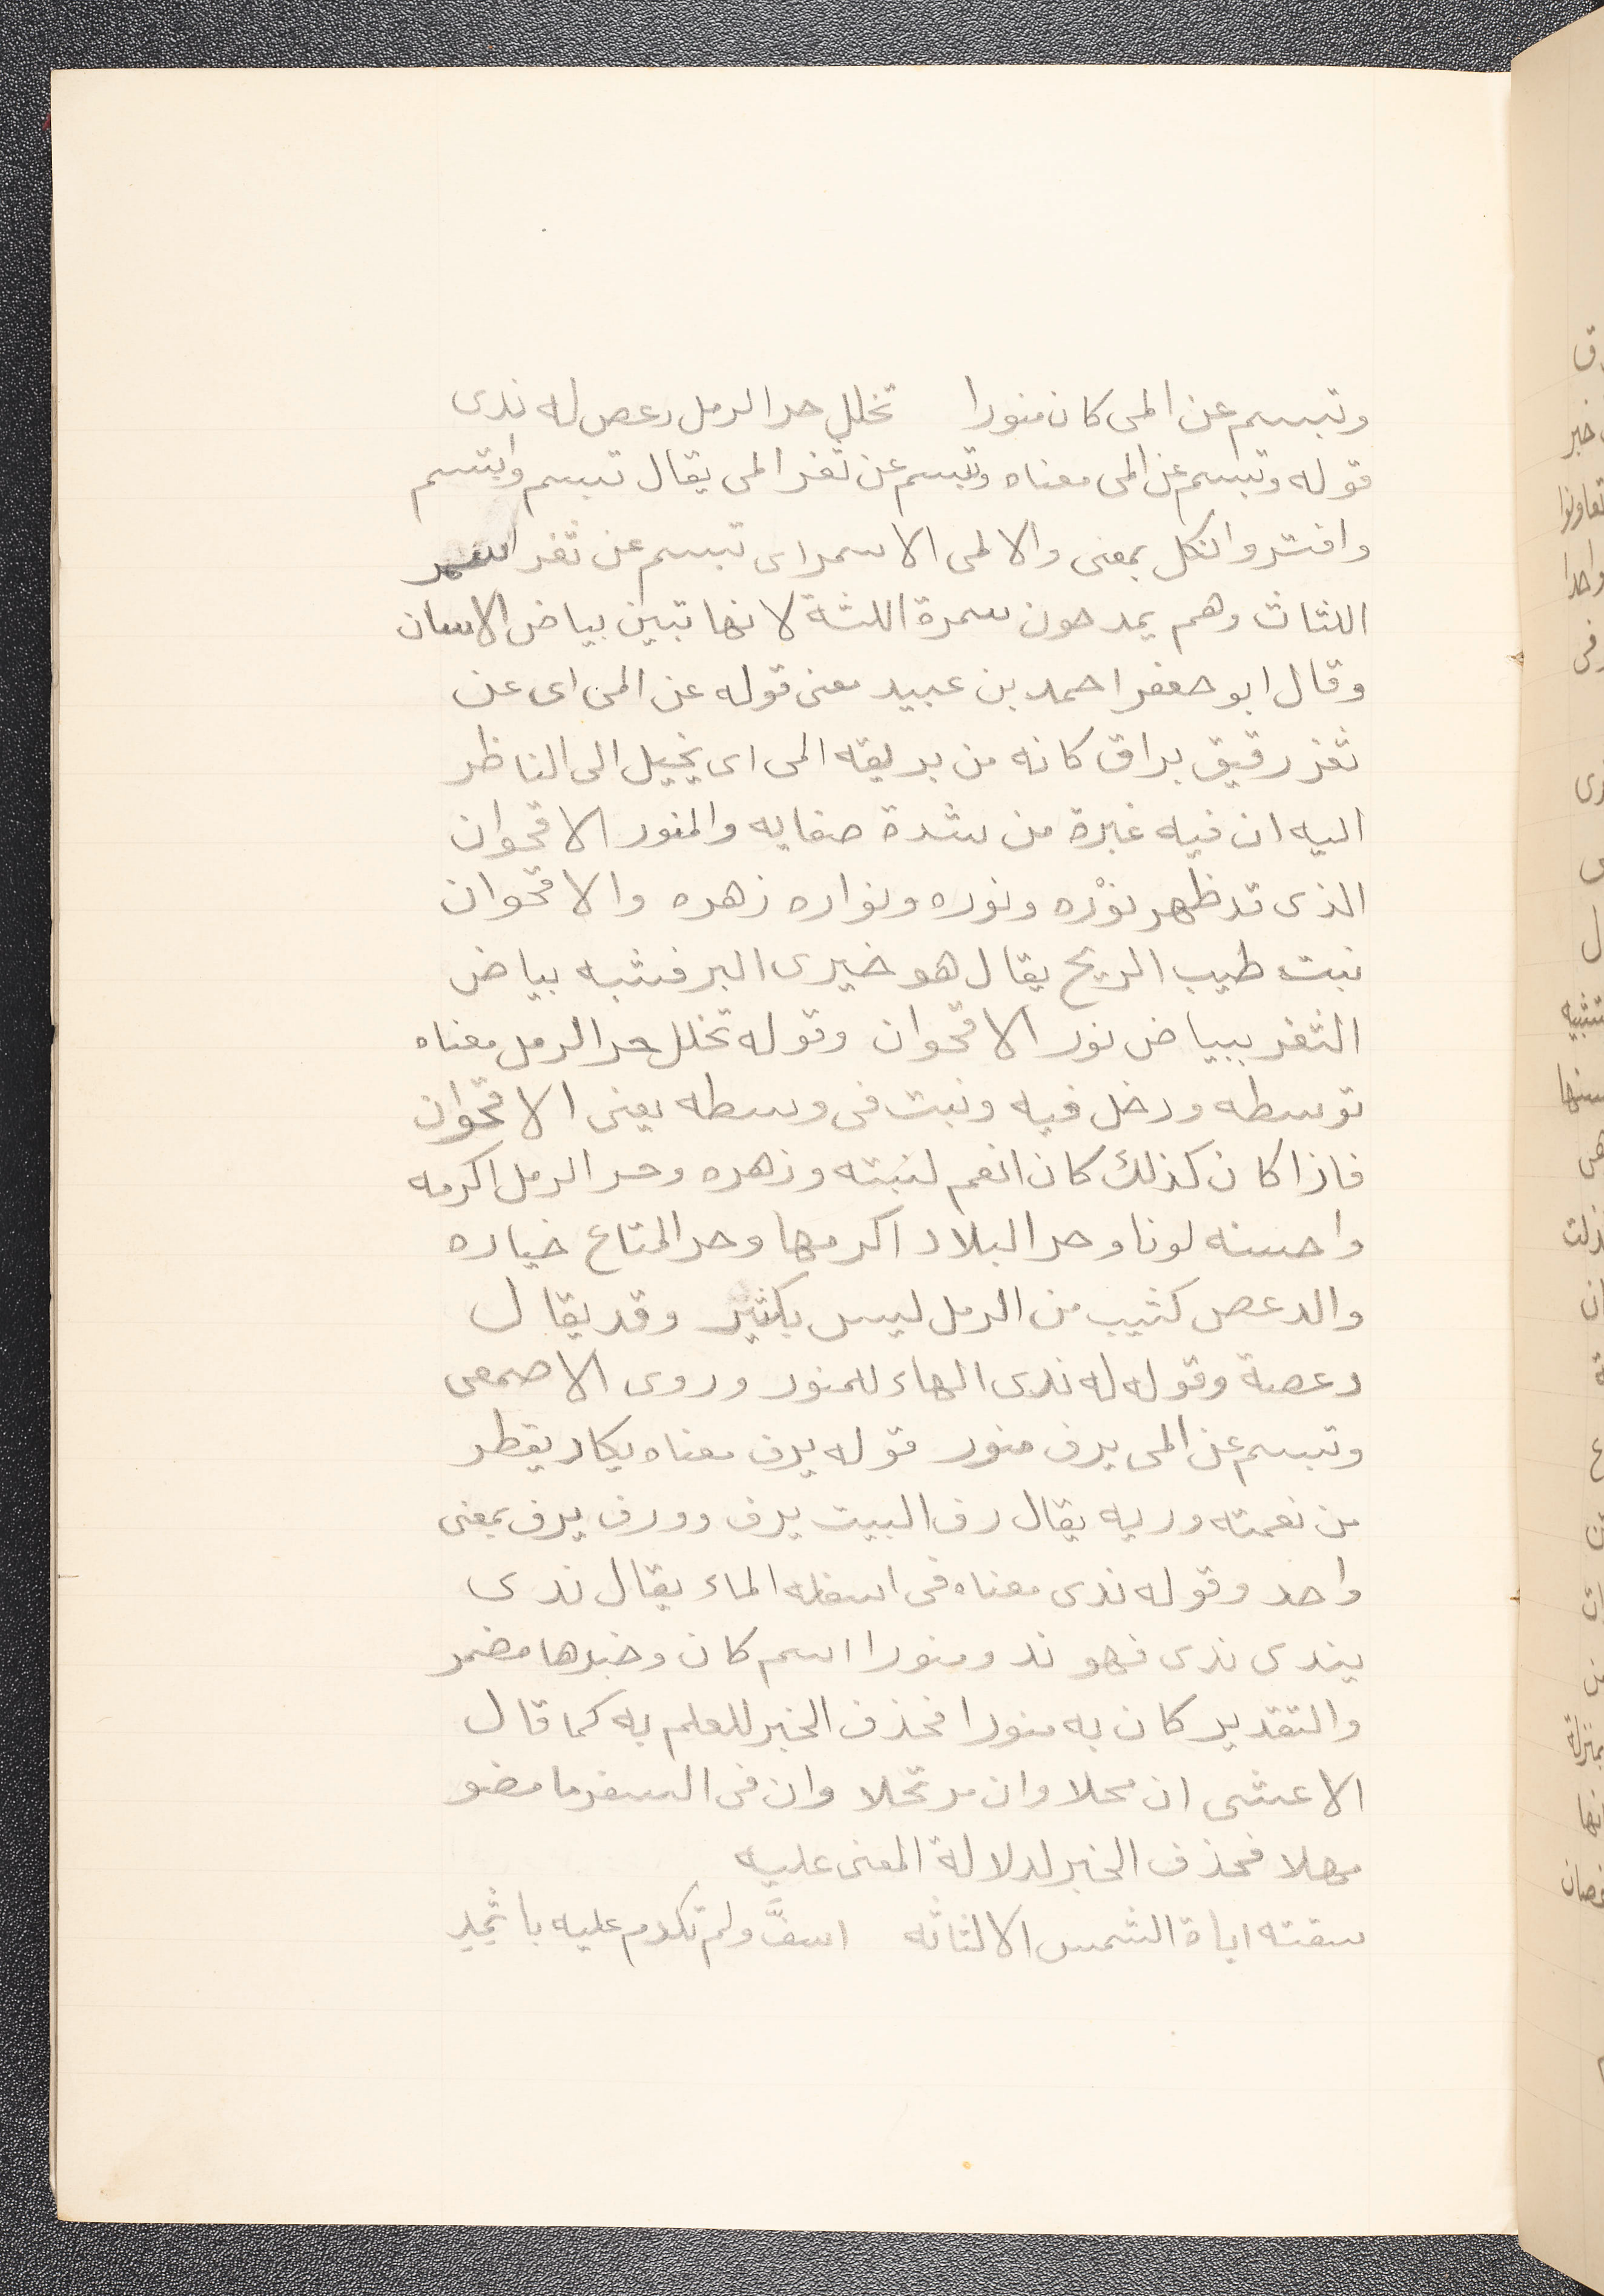 وتبسم عن المى كان منورا تخلل حر الرمل دعص له ندى
قوله وتبسم عن المى معناه وتبسم عن ثغر المى يقال تبسم وابتسم
وافتر والكل بمعنى والالمى الاسمر اى تبسم عن ثغر اسمر
اللثاث وهم يمدحون سمرة اللثة لانها تبين بياض الاسنان
وقال ابو جعفر احمد بن عبيد معنى قوله عن المى اى عن
ثغر رقيق براق كانه من بريقه المى اى يخيل الى الناظر
اليه ان فيه غبرة من شدة صفايه والمنور الاقحوان
الذى قد ظهر نوْره ونوره ونواره زهره والاقحوان
نبت طيب الريح يقال هو خيرى البر فشبه بياض
الثغر ببياض نور الاقحوان وقوله تخلل حر الرمل معناه
توسطه ودخل فيه ونبت فى وسطه يعنى الاقحوان
فاذا كان كذلك كان انعم لنبته وزهره وحر الرمل اكرمه
واحسنه لونا وحر البلاد اكرمها وحر المتاع خياره
والدعص كثيب من الرمل ليس بكثير وقد يقال
دعصة وقوله له ندى الهاء للمنور وروى الاصمعى
وتبسم عن المى يرف منور قوله يرف معناه يكاد يقطر
من نعمته وريه يقال رف البيت يرف وورف يرف بمعنى
واحد وقوله ندى معناه فى اسفله الماء يقال ندى
يندى ندى فهو ند ومنورا اسم كان وخبرها مضمر
والتقدير كان به منورا فحذف الخبر للعلم به كما قال
الاعشى ان محلا وان مرتحلا وان فى السفر ما مضو
مهلا فحذف الخبر لدلالة المعنى عليه
سقته اياة الشمس الا لثاته اسفَّ ولم تكدم عليه باثمد